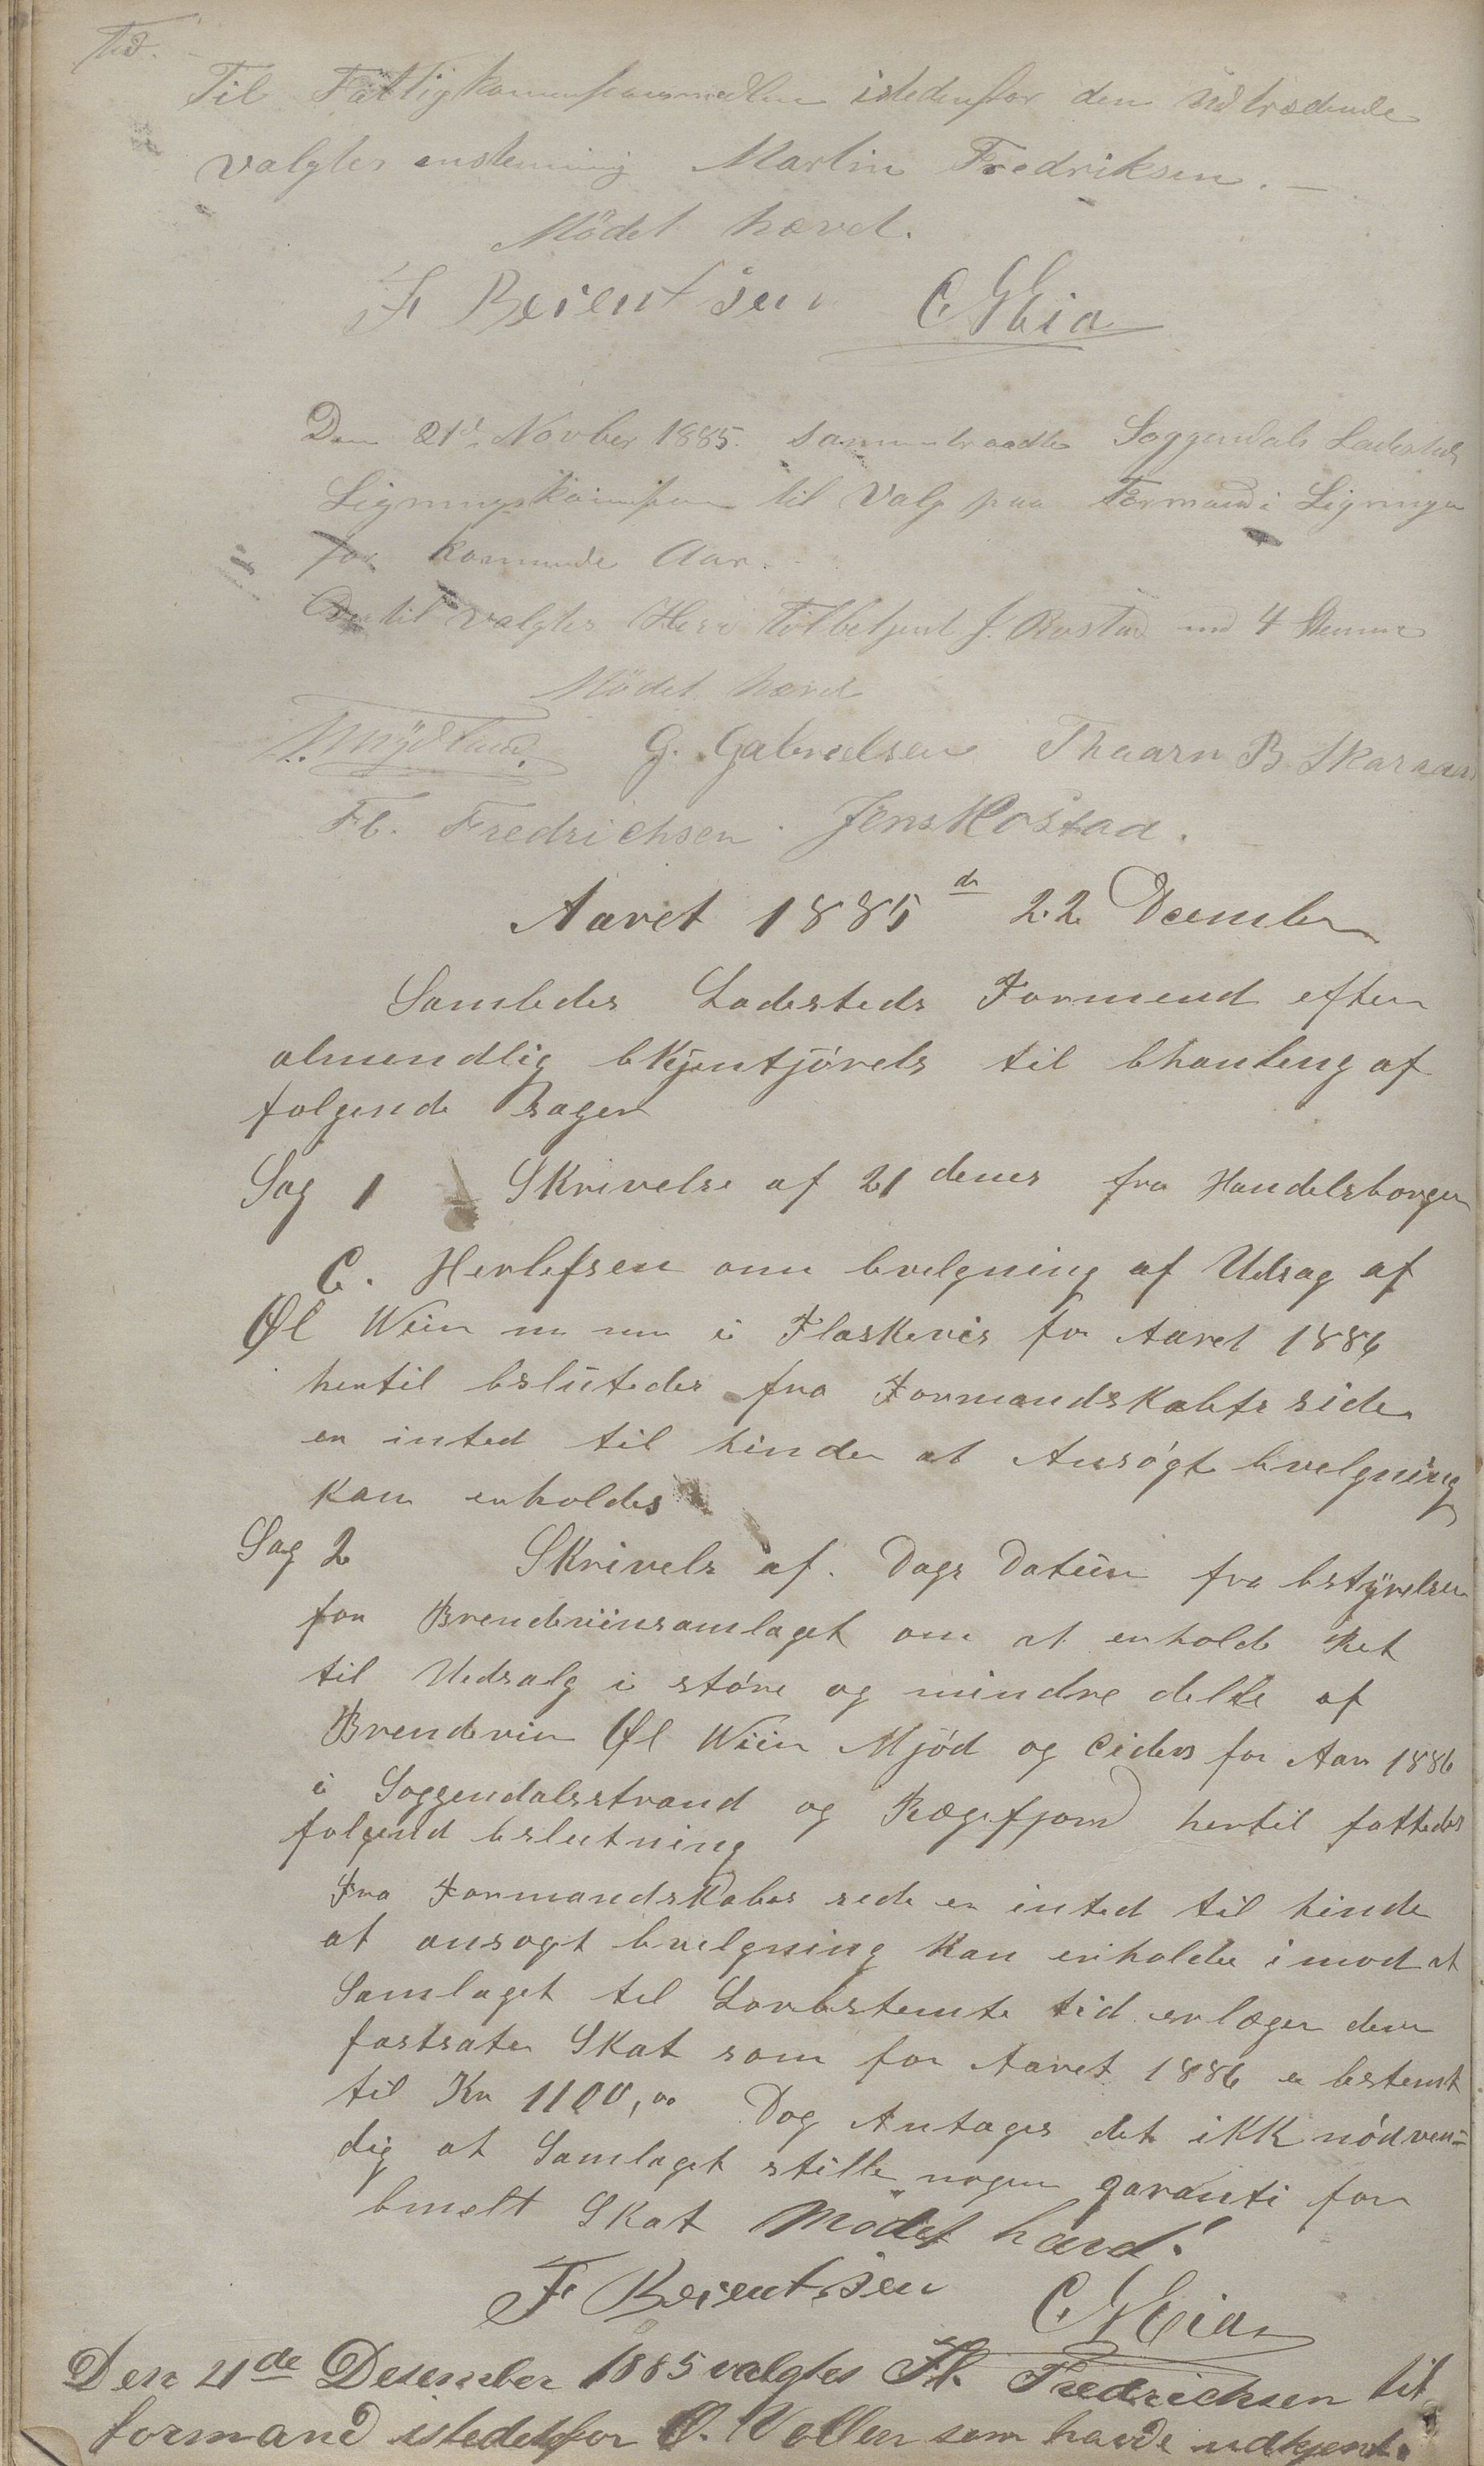 Til Fattigkommissionsmedlem istedenfor den Udtrædende
valgtes enstemmig Martin Fredriksen. —
Mödet hævet.
F Berentsen C Meia
Den 21de Novber 1885. sammentraadte Soggendals Ladesteds
Ligningskommission til Valg paa Formand i Ligningen
for kommende Aar.
Dertil valgtes Herr Tolbetjent J. Rostad med 4 Stemmer
Mödet hævet
G. Gabrielsen Thaarn B. Skaraas
Fl. Fredrichsen. Jens Rostad.
Aaret 1885 de 22 December
Samledes Ladesteds Formend efter
almendlig bkjentjörels til bhanling af
følgende Sager
Sag 1 Skrivelse af 21 denes fra Handelsborger
C. Herlefsen om bvelgning af Udsag af
Øl Wiin m m i Flaskevis for Aaret 1886
hertil bslutedes fra Formandskabets side
er inted til hinder at Ansögt bvelgning
kan erholdes
Sag 2 Skrivels af. Dags Datum fra bstyrelsen
for Brendeviinsamlaget om at erholde Ret
til Udsalg i störe og mindre delle af
Brendevin Øl Wiin Mjöd og Ciders for Aar 1886
i Soggendalsstrand og Rægefjord hertil fattedes
følgend bslutning
Fra Formandskabes side er inted til hinde
at ansøgt bvelgning kan erholdes imod at
Samlaget til Lovbstemte tid erlæger den
fastsate Skat som for Aaret 1886 er bstemt
til Kr 1100,00 Dog Antages det ikk nödven=
dig at Samlaget stille nogen garanti for
bmelt Skat Mødet hævd!
F Berentsen C Meia
Den 21de Desember 1885 valgtes Fl. Fredrichsen til
formand istedetfor O. Vollen som havde udtjent.